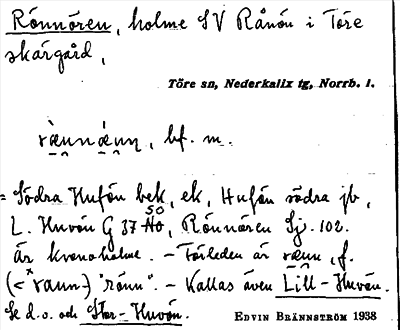 Rönnören, holme SV Rånön i Töre
skärgård,
Töre sn, Nederkalix tg, Norrb. l.
rænnǽnn, bf. m.
= Södra Hufön bek, ek, Hufön södra jb,
L. Huvön G 37 SO, Rönnören Sj. 102.
Är kronoholme. – Förleden är rænn, f.
(< *raun-) "rönn". – Kallas även Lill-Huvön.
Se d.o. och Stor-Huvön.
EDVIN BRÄNNSTRÖM 1938